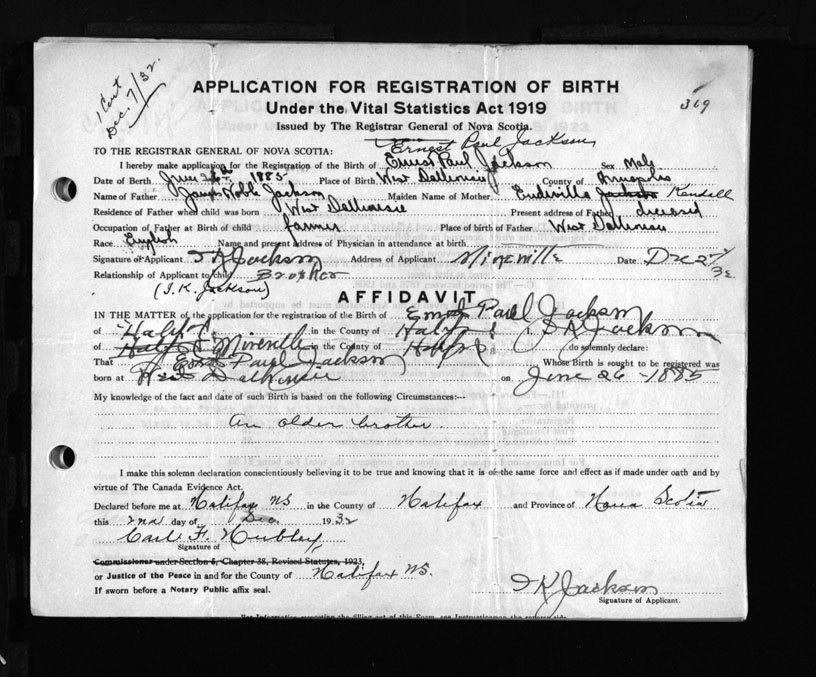 1 Cert
Dec. 7/32.
APPLICATION FOR REGISTRATION OF BIRTH
Under the Vital Statistics Act 1919
369
Issued by The Registrar General of Nova Scotia.
Ernest Paul Jackson
TO THE REGISTRAR GENERAL OF NOVA SCOTIA:
I hereby make application for the Registration of the Birth of Ernest Paul Jackson Sex Male
Date of Birth June 26th 1885 Place of Birth West Dalhousie County of Annapolis
Name of Father Noble Jackson Maiden Name of Mother Jackson Randall
Residence of Father when child was born West Dalhousie Present address of Father deceased
Occupation of Father at Birth of child farmer Place of birth of Father West Dalhousie
Race English Name and present address of Physician in attendance at birth
Signature of Applicant Jackson Address of Applicant Mineville Date Dec 2nd/32
Relationship of Applicant to child Brother
(I.K. Jackson)
AFFIDAVIT
IN THE MATTER of the application for the registration of the Birth of Ernest Paul Jackson
of Halifax in the County of Halifax I, Jackson
of Mineville in the County of do solemnly declare:
That Ernest Paul Jackson Whose Birth is sought to be registered was
born at West Dalhousie on June 26 - 1885
My knowledge of the fact and date of such Birth is based on the following Circumstances:--
An older brother.
I make this solemn declaration conscientiously believing it to be true and knowing that it is of the same force and effect as if made under oath and by
virtue of The Canada Evidence Act.
Declared before me at Halifax NS in the County of Halifax and Province of Nova Scotia
this 2nd day of Dec 1932
Carl F. Hubley
Signature of
Commissioner under Section 5, Chapter 38, Revised Statutes, 1923,
or Justice of the Peace in and for the County of Halifax NS.
If sworn before a Notary Public affix seal.
I K Jackson
Signature of Applicant.
For Information respecting the filling out of this Form, see Instructions on the reverse side.